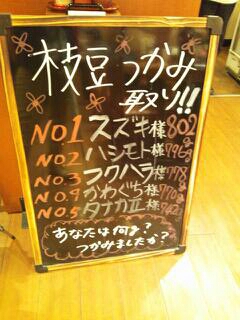 枝豆つかみ
取り!!
NO.1 スズキ様 802g
NO.2 ハシモト様 796g
NO.3 フクハラ様 778g
NO.4 かわぐち様 770g
NO.5 タナカ
あなたは何g?
つかみましたか?